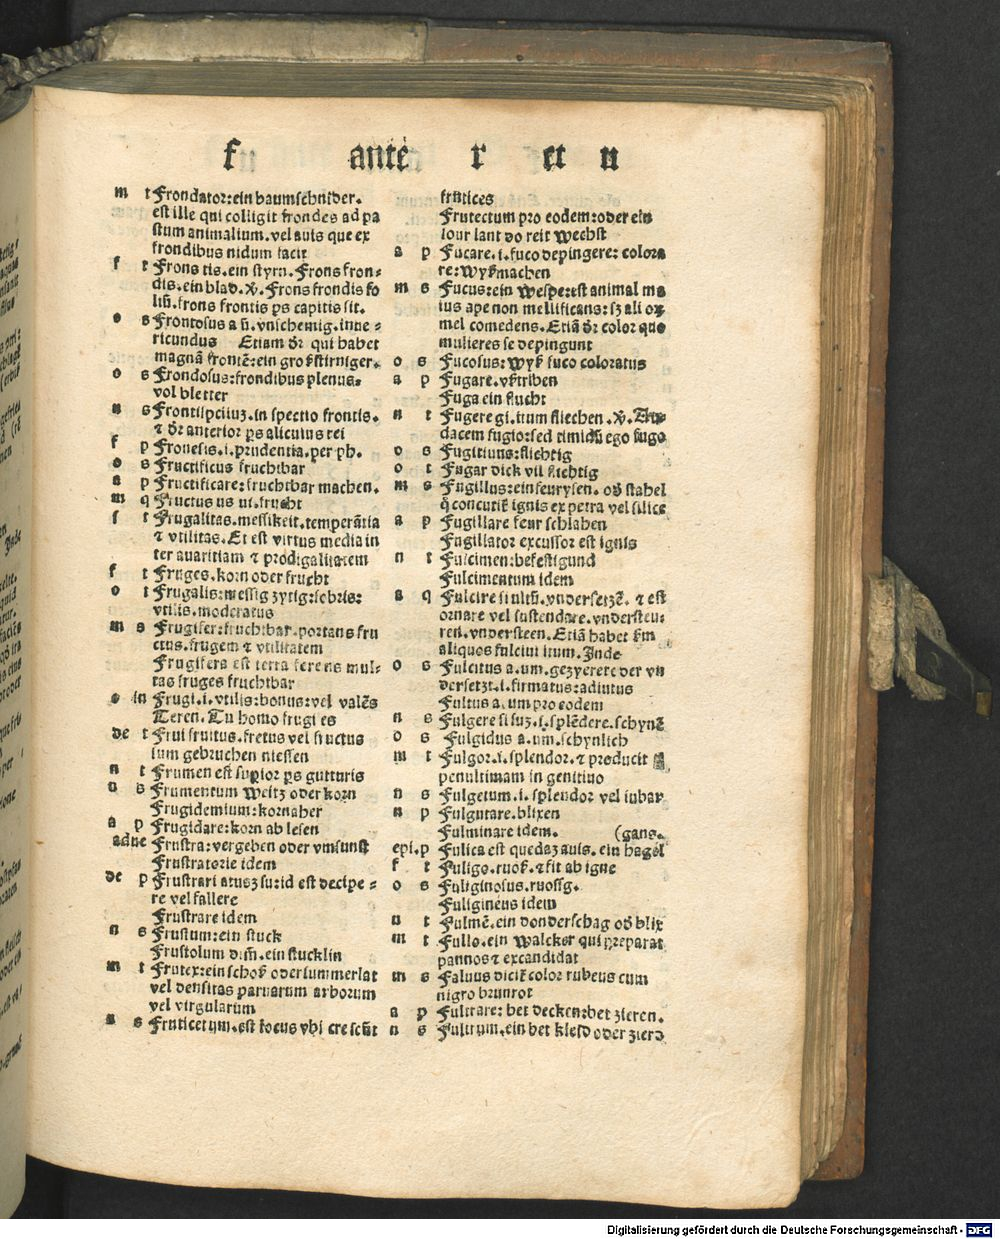 f ante r et u
m t Frondator:ein baumschnider.
est ille qui colligit frondes ad pa
stum animalium.vel auis que ex
frondibus nidum facit
f t Frons tis.ein styrn.Frons fron-
dis.ein blad.v̄.Frons frondis fo
liū.frons frontis ps capitis sit.
o s Frontosus a ū.vnschemig.inue-
ricundus Etiam dr qui habet
magnā frontē:ein großstirniger.
o s Frondosus:frondibus plenus.
vol bletter
n s Frontispiciuz.in spectio frontis.
⁊ dr anterior ps alicuius rei
f p Fronesis.i.prudentia.per ph.
o s Fructificus fruchtbar
a p Fructificare:fruchtbar machen.
m q Fructus us ui.frucht
f t Frugalitas.messikeit.temperātia
⁊ vtilitas.Et est virtus media in
ter auaritiam ⁊ prodigalitatem
f t Fruges.korn oder frucht
o t Frugalis:messig zytig:sobris:
vtilis.moderatus
m s Frugifer:fruchtbar.portans fru
ctus.frugem ⁊ vtilitatem
Frugifera est terra ferens mul-
tas fruges fruchtbar
o in Frugi.i.vtilis:bonus:vel valēs
Teren.Tu homo frugi es
de t Frui fruitus.fretus vel fructus
sum gebruchen niessen
n t Frumen est supior ps gutturis
n s Frumentum Weitz oder korn
Frugidemium:kornaher
a p Frugidare:korn ab lesen
adue Frustra:vergeben oder vmsunst
Frustratorie idem
de p Frustrari atusz su:id est decipe-
re vel fallere
Frustrare idem
n s Frustum:ein stuck
Frustolum dim̄.ein stucklin
m t Frutex:ein schoß oder summerlat
vel densitas paruarum arborum
vel virgularum
n s Fruticetum.est locus vbi crescūt
frutices
Frutectum pro eodem:oder ein
lour lant do reit wechst
a p Fucare.i.fuco depingere:colora
re:Wyßmachen
m s Fucus:ein Wespe:est animal ma
ius ape non mellificans:sz ali oꝝ
mel comedens.Etiā dr color quo
mulieres se depingunt
o s Fucosus:Wyß fuco coloratus
a p Fugare.vßtriben
Fuga ein flucht
n t Fugere gi.itum fliechen.v̄.Au
dacem fugio:sed timidū ego fugo
o s Fugitiuus:flichtig
o t Fugax dick vil flichtig
m s Fugillus:ein feurysen.odͥ stahel
q̄ concutit̄ ignis ex petra vel silice
a p Fugillare feur schlahen
Fugillator excussor est ignis
n t Fulcimen:befestigund
Fulcimentum idem
a q Fulcire si ultū.vndersetzē.⁊ est
ornare vel sustendare.vndersteu-
ren.vndersteen.Etiā habet ßm
aliquos fulciui itum.Inde
o s Fulcitus a.um.gezyerete der vn
dersetzt.i.firmatus:adiutus
Fultus a.um pro eodem
n s Fulgere si suz.i.splēdere.schynē
o s Fulgidus a.um.schynlich
m t Fulgor.i.splendor.⁊ producit
penultimam in genitiuo
n s Fulgetum.i.splendor vel iubar
n p Fulgurare.blixen
Fulminare idem. (gans.
epi.p Fulica est quedaz auis.ein hagel
f t Fuligo.ruoß.⁊ fit ab igne
o s Fuliginosus.ruossg.
Fuligineus idem
n t Fulmē.ein donderschag odͥ blix
m t Fullo.ein Walcker qui preparat
pannos ⁊ excandidat
m s Faluus dicit̄ color rubeus cum
nigro brunrot
a p Fulcrare:bet decken:bet zieren.
n s Fulcrum.ein bet kleid oder zierd
Digitalisierung gefördert durch die Deutsche Forschungsgemeinschaft - DFG